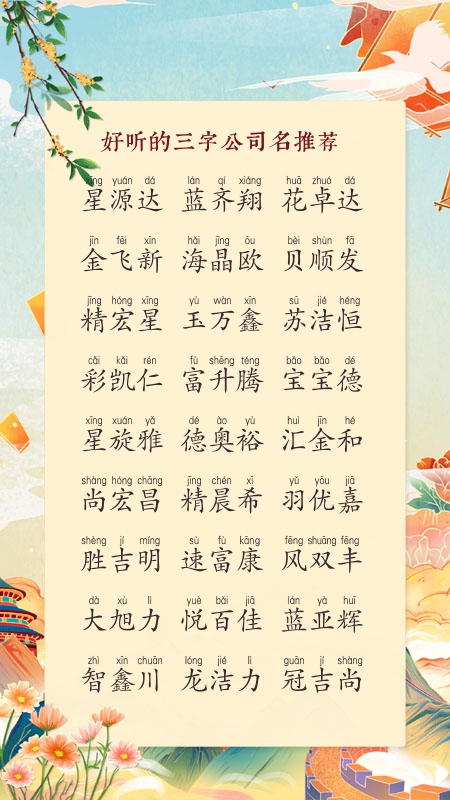 好听的三字公司名推荐
xīng yuán dá lán qí xiáng huā zhuó dá
星源达 蓝齐翔 花卓达
jīn fēi xīn hǎi jīng ōu bèi shùn fā
金飞新 海晶欧 贝顺发
jīng hóng xīng yù wàn xīn sū jié héng
精宏星 玉万鑫 苏洁恒
cǎi kǎi rén fù shēng téng bǎo bǎo dé
彩凯仁 富升腾 宝宝德
xīng xuán yǎ dé ào yù huì jīn hé
星旋雅 德奥裕 汇金和
shàng hóng chāng jīng chén xī yǔ yōu jiā
尚宏昌 精晨希 羽优嘉
shèng jí míng sù fù kāng fēng shuāng fēng
胜吉明 速富康 风双丰
dà xù lì yuè bǎi jiā lán yà huī
大旭力 悦百佳 蓝亚辉
zhì xīn chuān lóng jié lì guān jí shàng
智鑫川 龙洁力 冠吉尚